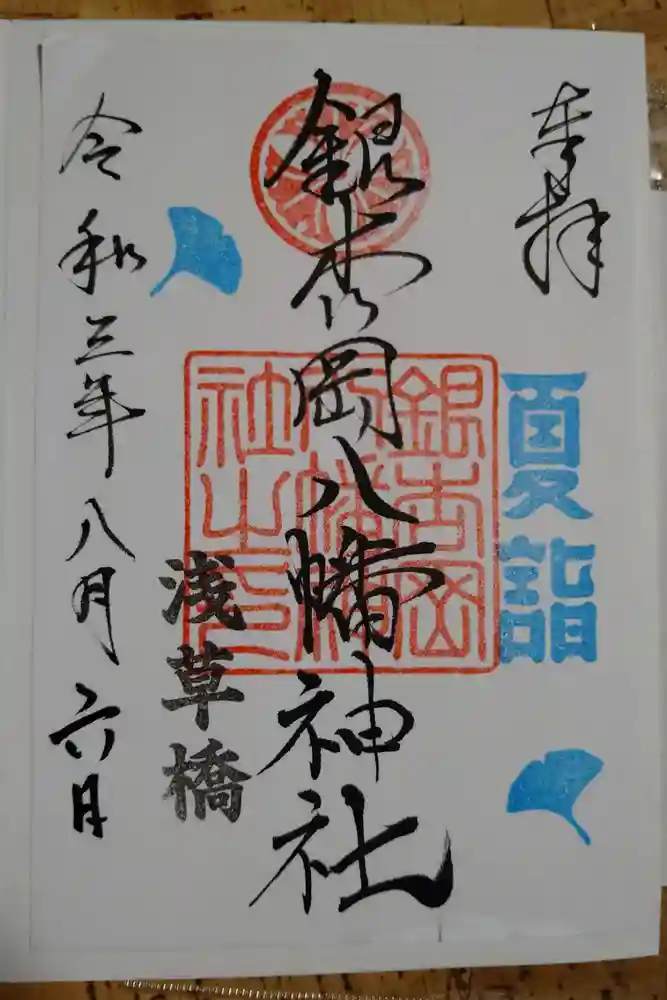 奉拝
夏詣
銀杏岡八幡神社
銀杏岡
八幡神
社之印
浅草橋
令和三年八月六日